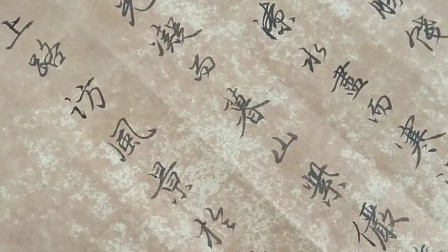 潦水盡而寒
凝而暮山紫儼
上路訪風景於